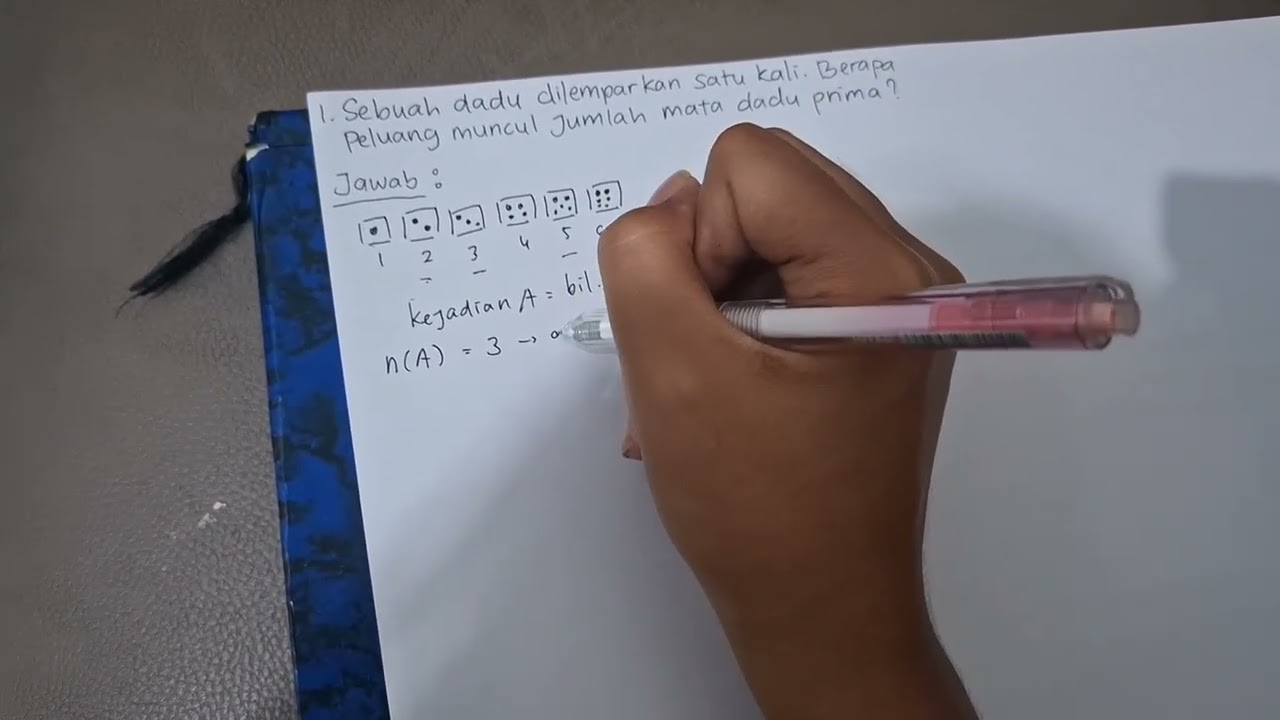 1. Sebuah dadu dilemparkan satu kali. Berapa
Peluang muncul Jumlah mata dadu prima?
Jawab :
1 2 3 4 5
Kejadian A = bil.
n(A) = 3 →